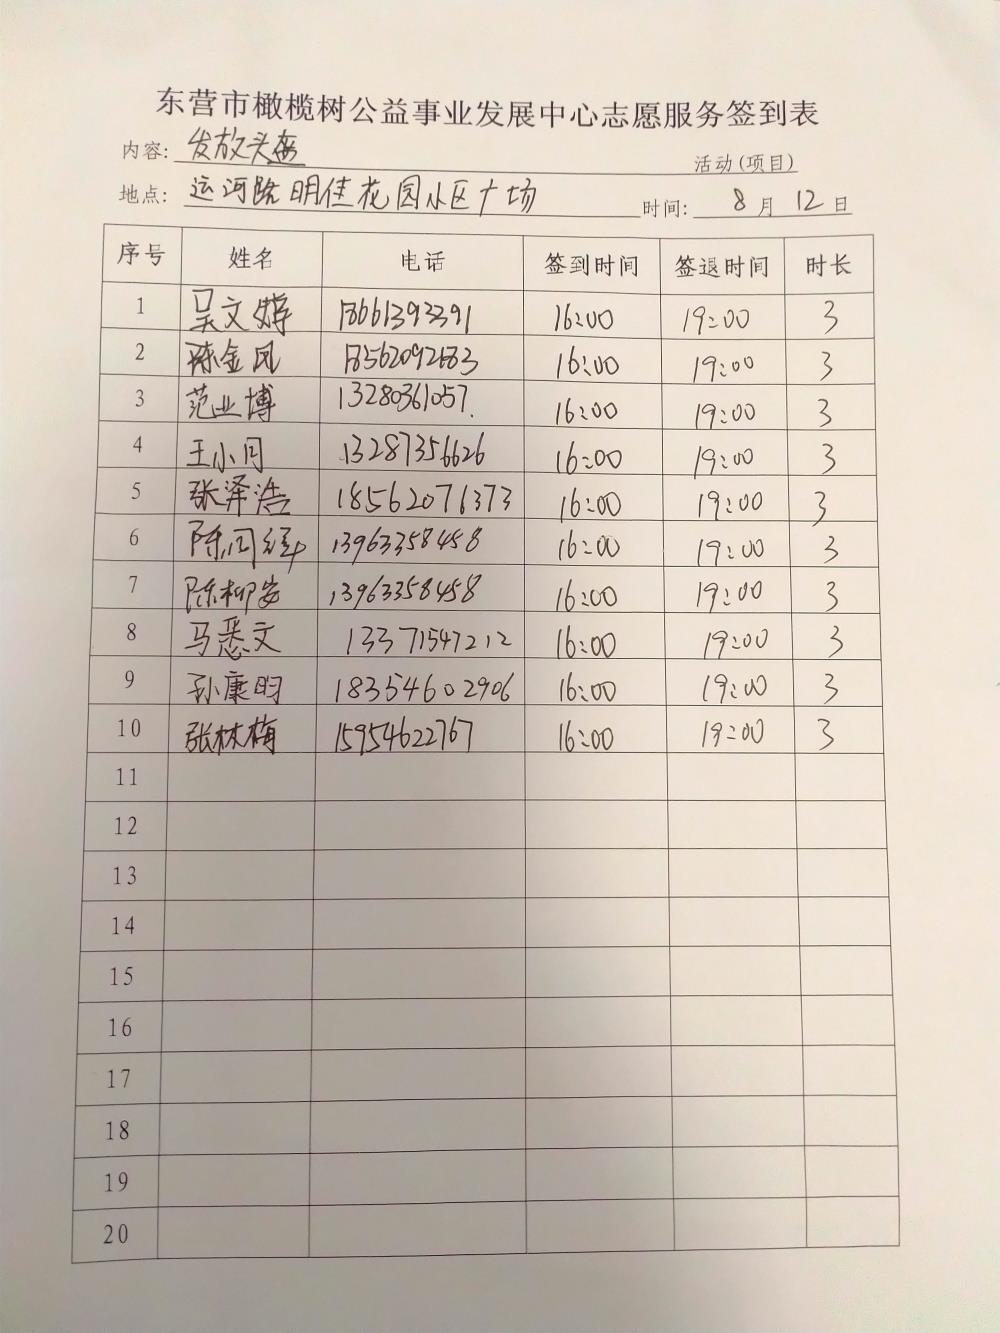 东营市橄榄树公益事业发展中心志愿服务签到表
内容: 发放头盔 活动(项目)
地点: 运河路明佳花园小区广场 时间: 8月12日
序号 姓名 电话 签到时间 签退时间 时长
1 吴文婷 18661393391 16:00 19:00 3
2 陈金凤 16:00 19:00 3
3 范业博 13280361057. 16:00 19:00 3
4 王小月 13287356626 16:00 19:00 3
5 张泽浩 18562071373 16:00 19:00 3
6 13963358458 16:00 19:00 3
7 陈柳安 13963358458 16:00 19:00 3
8 马悉文 13371547212 16:00 19:00 3
9 孙康昀 18354602906 16:00 19:00 3
10 张林梅 15954622767 16:00 19:00 3
11
12
13
14
15
16
17
18
19
20